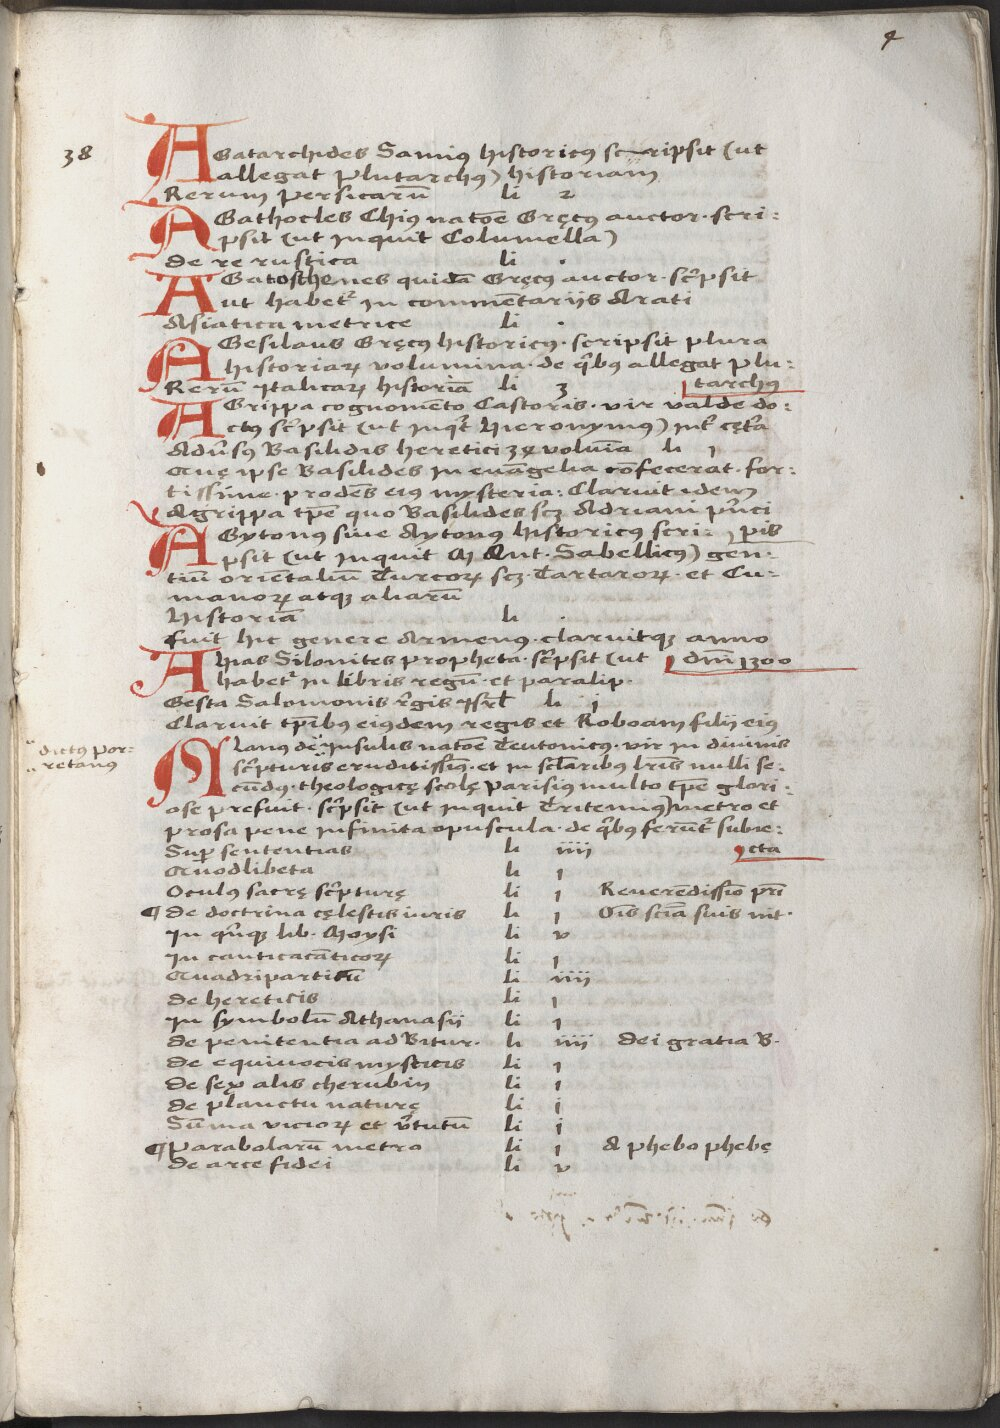 4
38
AGatarchides Samiꝰ historicꝰ scripsit (ut
allegat Plutarchꝰ) historiam
Rerum persicarū li 2
AGathocles Chiꝰ natōe Gręcꝰ auctor · scri:
psit (ut inquit Columella)
de re rustica li ·
AGatosthenes quidā Gręcꝰ auctor · sc̓psit
ut habet᷑ in commētariis Arati
Asiatica metrice li ·
AGesilaus Gręcꝰ historicꝰ · scripsit plura
historiaꝝ volumina · de q̓bꝰ allegat Plu:
tarchꝰ
Rerū Italicaꝝ historiā li 3
AGrippa cognomēto Castoris · vir valde do:
ctꝰ sc̓psit (ut inq̓t Hieronymꝰ) int̓ cęt̓a
Adūsꝰ Basilidis heretici 34 volūia li 1
Quę ipse Basilides in euāgelia cōfecerat · for:
tissime · prodēs eiꝰ mysteria: Claruit idem
Agrippa tꝑe quo Basilides scꝫ Adriani p̓nci
pis
AGytonꝰ siue Aytonꝰ historicꝰ scri:
psit (ut inquit M Ant · Sabellicꝰ) gen ·
tiū oriētaliū Turcoꝝ scꝫ · Tartaroꝝ · et Cu:
manoꝝ atqꝫ aliarū
Historiā li ·
fuit hic genere Armenꝰ · claruitqꝫ anno
dn̄i 1300
AHias Silonites propheta · sc̓psit (ut
habet᷑ in libris regū · et paralip ·
Gesta Salomonis r̓gis isr̄l li j
Claruit tꝑibꝰ eiꝰdem regis et Roboam filii eiꝰ
dictꝰ por:
retanꝰ
ALanus de Insulis natōe Teutonicꝰ · vir in diuinis
sc̓pturis eruditissimꝰ · et in sc̄laribꝰ lr̄is nulli se:
cūdꝰ · theologicę scolę Parisiꝰ multo tꝑe glori:
ose prefuit · sc̓psit (ut inquit Tritemiꝰ) metro et
prosa pene infinita opuscula · de q̓bꝰ ferūt᷑ subie:
cta
Suꝑ sententias li iiii
Quodlibeta li 1
Oculꝰ sacrę sc̓pturę li 1 Reuerēdissīo pr̄i
¶ de doctrina cęlestis iuris li 1 Oīs sciā suis nit ·
In q̓nqꝫ lib · Moysi li v
In cantica cāticoꝝ li 1
Quadripartitū li iiii
de hereticis li 1
In symbolū Athanasii li 1
de penitentia ad Bitur · li iiii dei gratia B ·
de equiuocis mysticis li 1
de sex alis cherubin li 1
de planctu naturę li j
Sūma vicioꝝ et v̓tutum li j
¶ Parabolarū metro li 1 A phebo phebę
de arce fidei li v